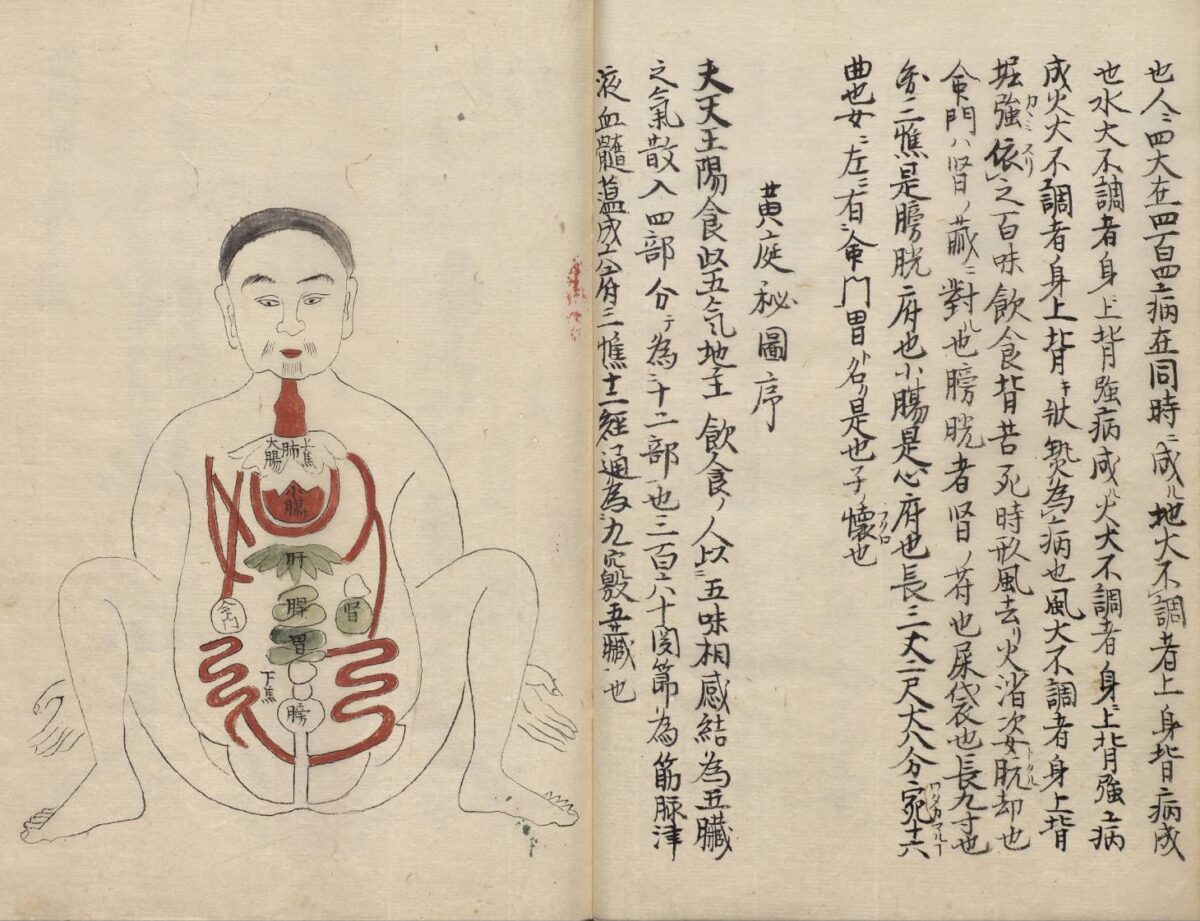 也人ニ四大在四百四病在同時ニ成ル地大不調者上身皆病成
也水大不調者身ニ上背強病成ル火大不調者身ニ上背強ニ病
成火大不調者身上背キ状熱為病也風大不調者身上皆
掘強依之百味飲食皆苦死時形風去リ火渚次女肮却也
カミスリ
命門ハ腎ノ藏ニ對ル也膀胱者腎ノ苻也屎袋衣也長九寸也
三憔是膀胱府也小膓是心府也長三丈二尺大八分宛十六
曲也女ニ左ニ有ニ命門胃ト名リ是也子ノ懐也
フクロ
黄庭秘圖序
夫天王陽食以五气地主飲食ノ人以ニ五味相感結為五臓
之氣散入四部分テ為ニ十二部也三百六十関節為筋脉津
液血髓蕰成六府三憔十二經通為ニ九穴殿五臓也
大腸
肺
上焦
小腸
肝
脾
胃
腎
命門
下焦
膀